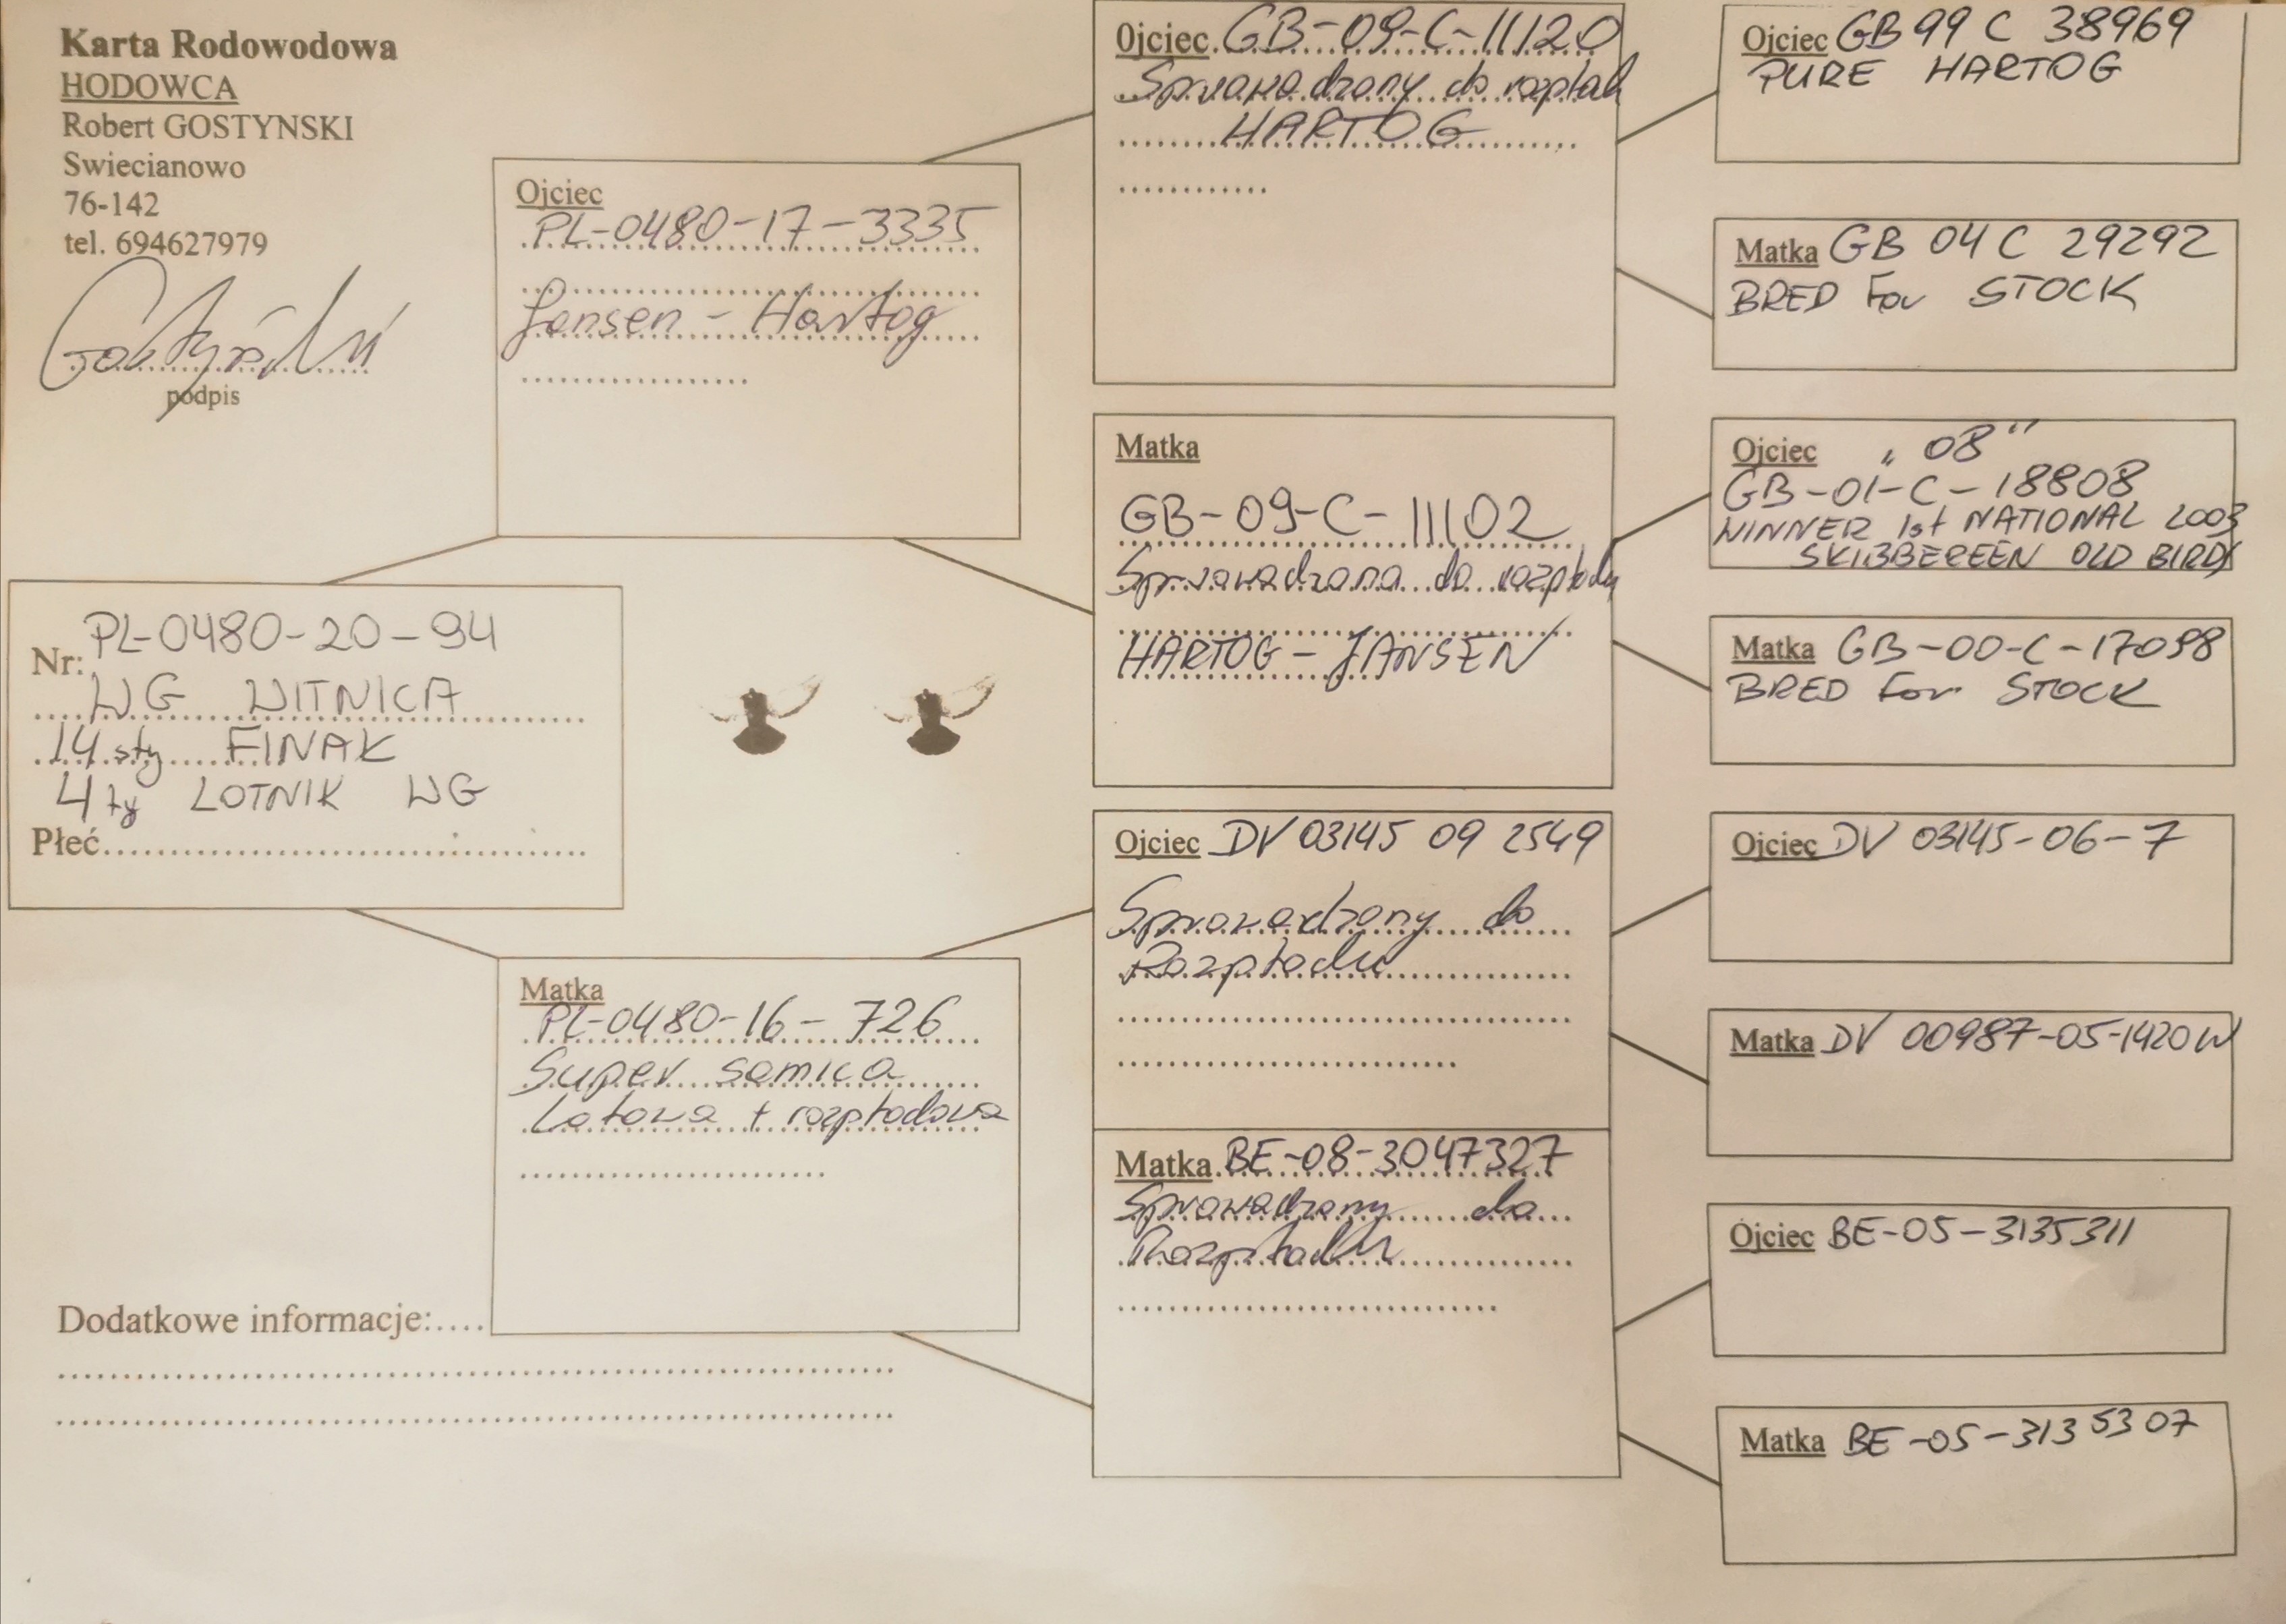 Karta Rodowodowa
HODOWCA
Robert GOSTYNSKI
Swiecianowo
76-142
tel. 694627979
podpis
Nr: PL-0480-20-94
WG WITNICA
14sty FINAK
4ty LOTNIK WG
Płeć
Ojciec
PL-0480-17-3335
Jansen - Hartog
Matka
PL-0480-16-726
Super samica
Lotowa + rozpłodowa
Dodatkowe informacje:
Ojciec GB-09-C-11120
Sprowadzony do rozpłodu
HARTOG
Matka
GB-09-C-11102
Sprowadzona do rozpłodu
HARTOG - JANSEN
Ojciec DV 03145 09 2549
Sprowadzony do
Rozpłodu
Matka BE-08-3047327
Sprowadzony do
Rozpłodu
Ojciec GB 99 C 38969
PURE HARTOG
Matka GB 04 C 29292
BRED For STOCK
Ojciec „08"
GB-01-C-18808
WINNER 1st NATIONAL 2003
SKIBBEREEN OLD BIRDS
Matka GB-00-C-17098
BRED For STOCK
Ojciec DV 03145-06-7
Matka DV 00987-05-1420W
Ojciec BE-05-3135311
Matka BE-05-3135307